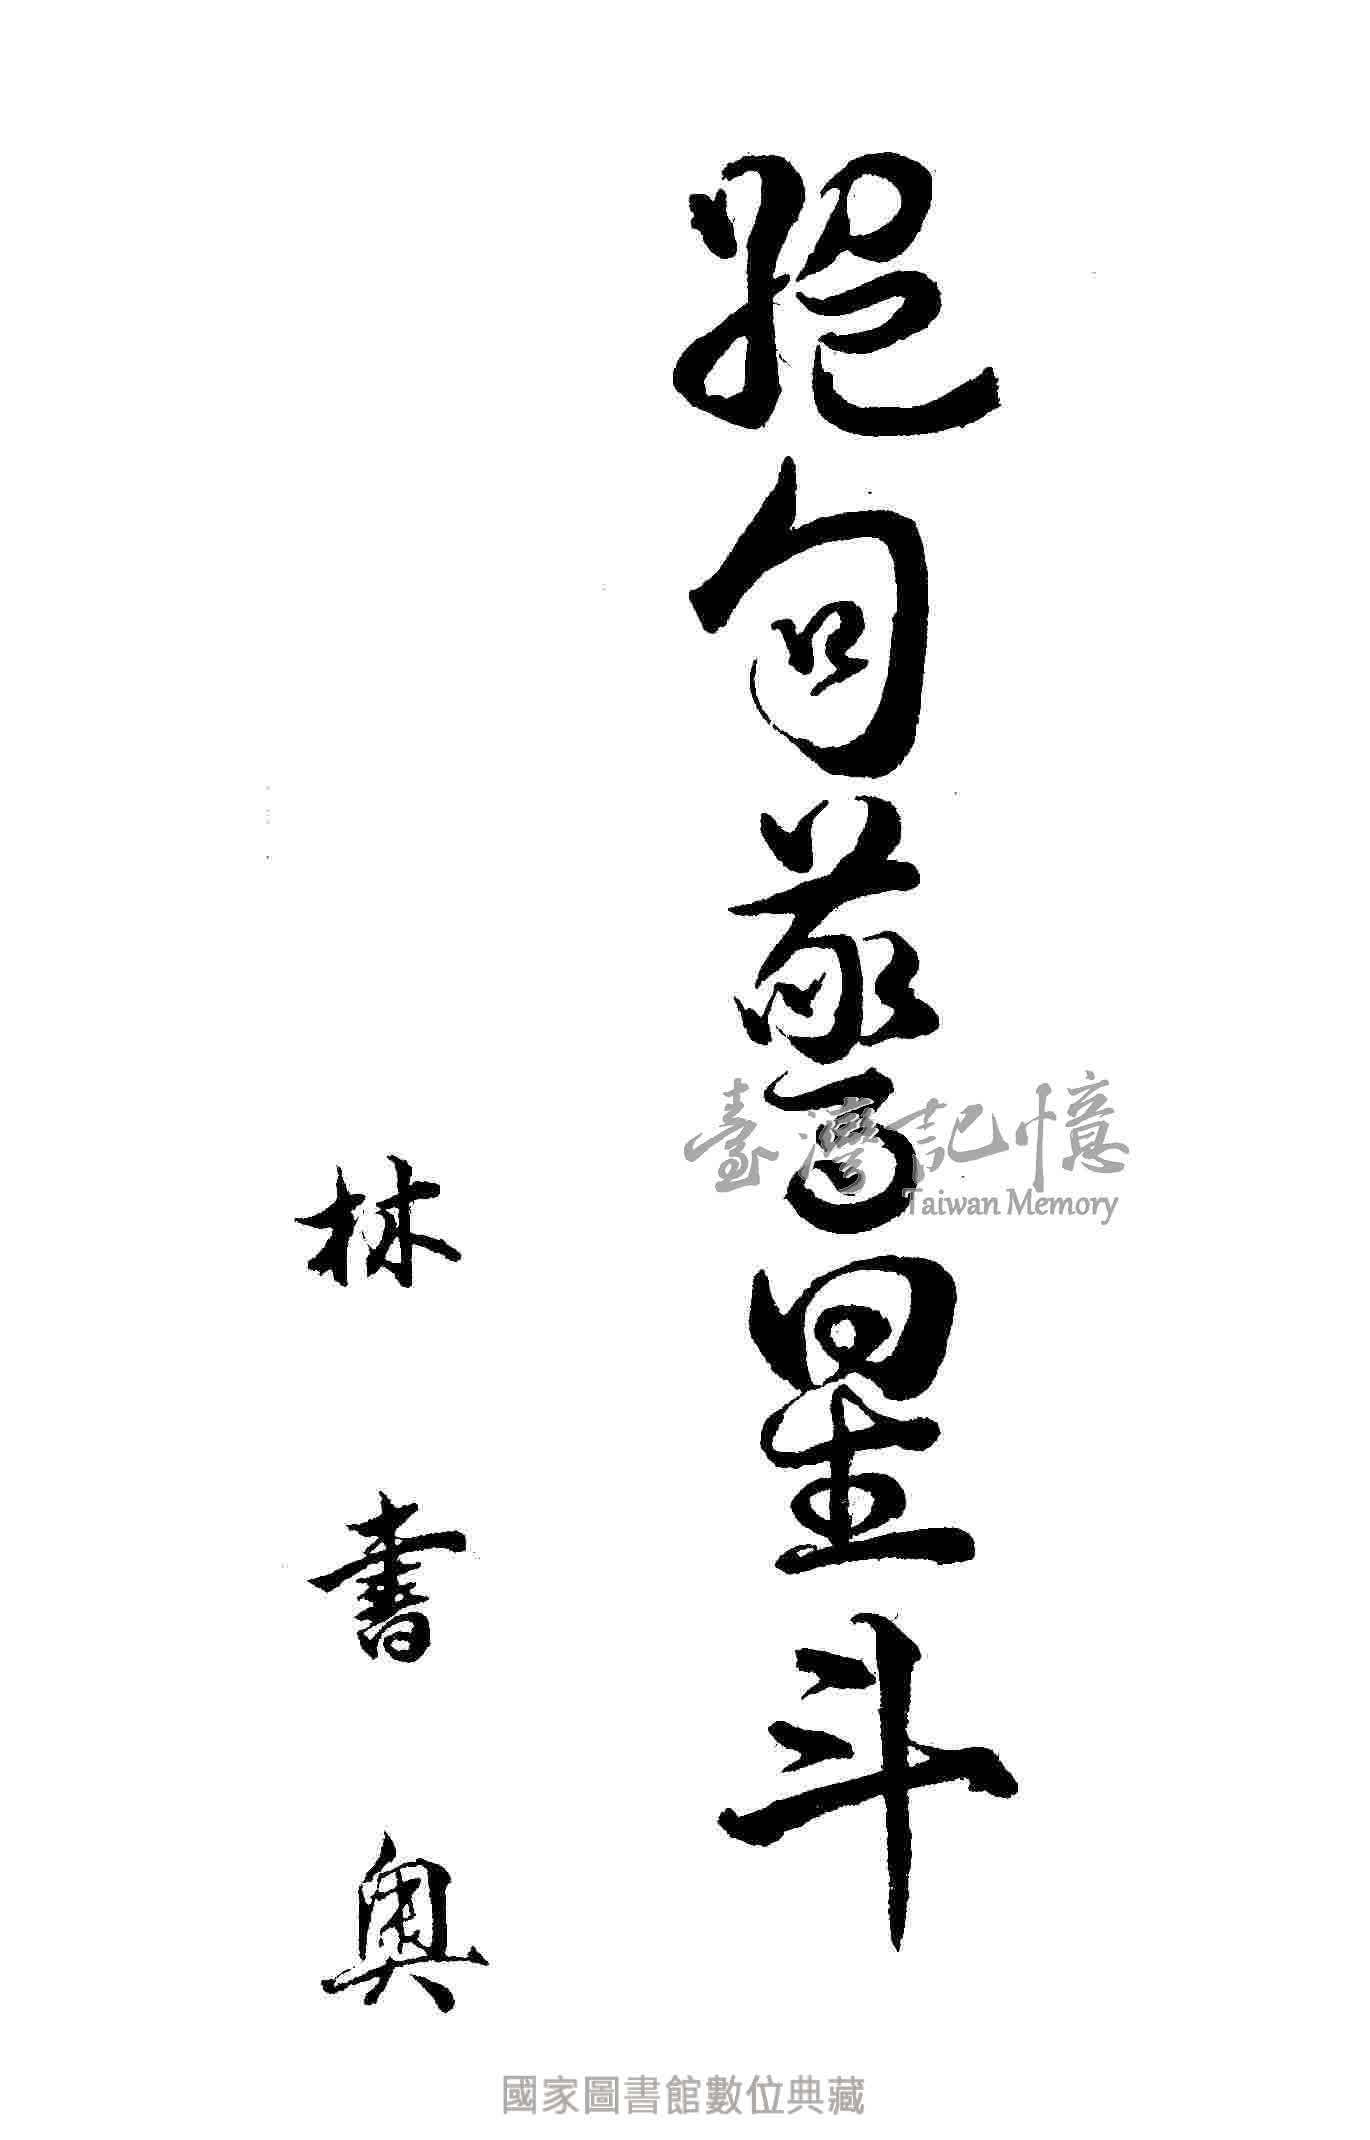 絕句驚星斗
林書奧
臺灣記憶
Taiwan Memory
國家圖書館數位典藏